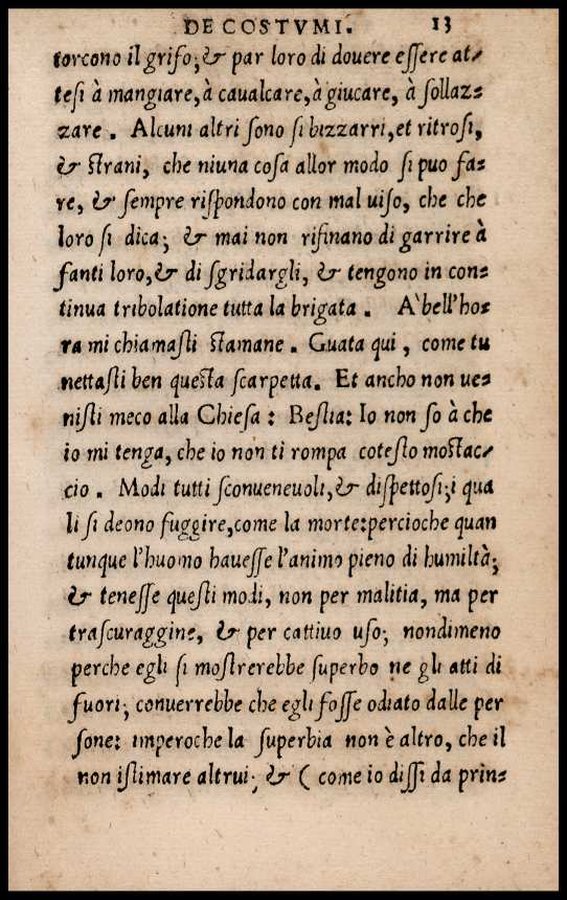 DE COSTVMI. 13
torcono il grifo; & par loro di douere eſſere at-
teſi à mangiare, à caualcare, à giucare, à ſollaz-
zare. Alcuni altri ſono ſi bizzarri, et ritroſi,
& ſtrani, che niuna coſa allor modo ſi puo fa-
re, & ſempre riſpondono con mal uiſo, che che
loro ſi dica; & mai non rifinano di garrire à
fanti loro, & di ſgridargli, & tengono in con-
tinua tribolatione tutta la brigata. A' bell'ho-
ra mi chiamaſti ſtamane. Guata qui, come tu
nettaſti ben queſta ſcarpetta. Et ancho non ue-
niſti meco alla Chieſa: Beſtia: Io non ſo à che
io mi tenga, che io non ti rompa coteſto moſtac-
cio. Modi tutti ſconueneuoli, & diſpettoſi; i qua
li ſi deono fuggire, come la morte: percioche quan
tunque l'huomo haueſſe l'animo pieno di humiltà;
& teneſſe queſti modi, non per malitia, ma per
traſcuraggine, & per cattiuo uſo; nondimeno
perche egli ſi moſtrerebbe ſuperbo ne gli atti di
fuori; conuerrebbe che egli foſſe odiato dalle per
ſone: imperoche la ſuperbia non è altro, che il
non iſtimare altrui; & ( come io diſſi da prin-